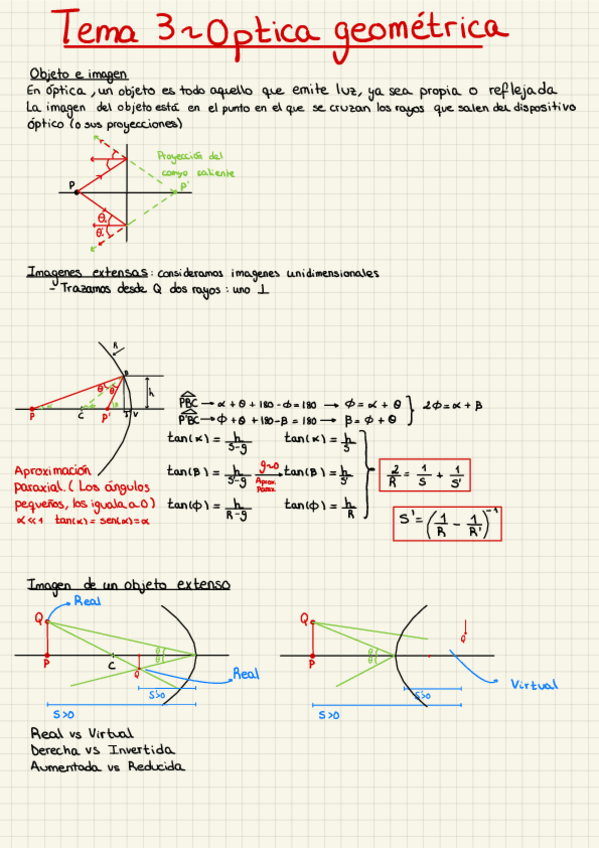 Tema 3~Optica geométrica
Objeto e imagen
En óptica, un objeto es todo aquello que emite luz, ya sea propia o reflejada
La imagen del objeto está en el punto en el que se cruzan los rayos que salen del dispositivo
óptico (o sus proyecciones)
Proyección del
campo saliente
P
P'
θ
θ
Imagenes extensas: consideramos imagenes unidimensionales
- Trazamos desde Q dos rayos: uno ⊥
R
B
θ θ'
h
P C P' V
PBC → α + θ + 180 - Φ = 180 → Φ = α + θ
2Φ = α + β
P'BC → Φ + θ + 180 - β = 180 → β = Φ + θ
tan(α) = h/(s-g) tan(α) = h/s
tan(β) = h/(s'-g) g~0 tan(β) = h/s'
Aprox. Parax.
2/R = 1/S + 1/S'
tan(Φ) = h/(R-g) tan(Φ) = h/R
S' = (1/R - 1/R')^-1
Aproximación
Paraxial. (Los ángulos
pequeños, los iguala a 0)
α<<1 tan(α) = sen(α) = α
Imagen de un objeto extenso
Real
Q
P
C
θ
θ
Q'
Real
S>0
S>0
Q
P
θ
θ
Q'
Virtual
S>0
S>0
Real vs Virtual
Derecha vs Invertida
Aumentada vs Reducida